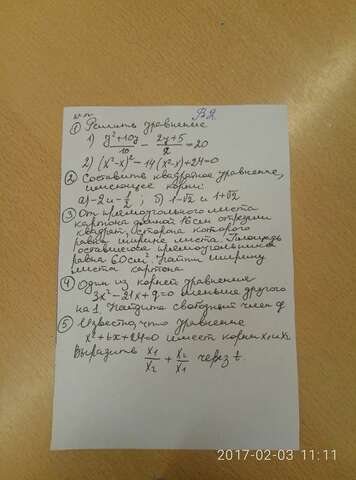 В2
① Решить уравнение
1) y²+10y/10 − 2y+5/2 = 20
2) (x²-x)²-14(x²-x)+24=0
② Составить квадратное уравнение,
имеющее корни:
а) -2 и -1/2 ; б) 1-√2 и 1+√2
③ От прямоугольного листа
картона длиной 16 см отрезали
квадрат, сторона которого
равна ширине листа. Площадь
оставшегося прямоугольника
равна 60 см². Найти ширину
листа картона
④ Один из корней уравнения
3x²-21x+q=0 меньше другого
на 1. Найдите свободный член q
⑤ Известно, что уравнение
x²+6x+24=0 имеет корни x₁ и x₂
Выразить x₁/x₂ + x₂/x₁ через t.
2017-02-03 11:11